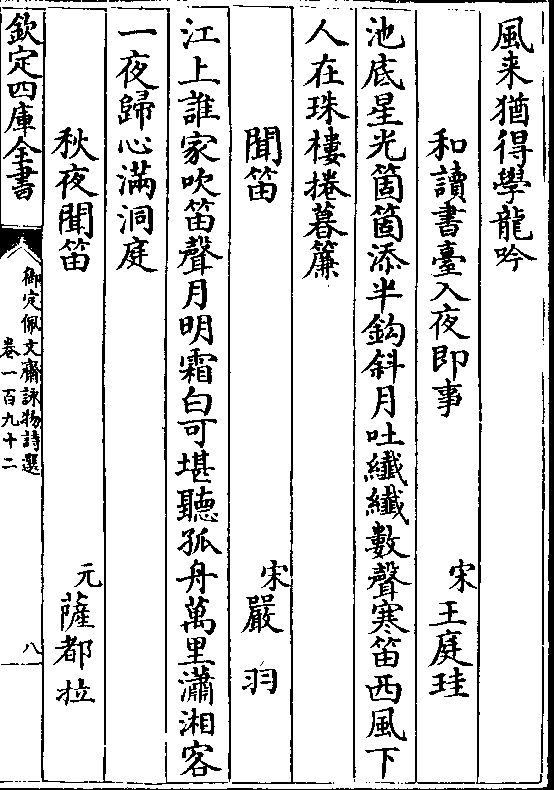 風来猶得學龍吟
和讀書臺入夜即事
宋王庭珪
池底星光箇箇添半鈎斜月吐纎纎數聲寒笛西風下
人在珠樓捲暮簾
聞笛
宋嚴羽
江上誰家吹笛聲月明霜白可堪聽孤舟萬里瀟湘客
一夜歸心滿洞庭
秋夜聞笛
元薩都拉
欽定四庫全書
御定佩文齋詠物詩選
卷一百九十二
八